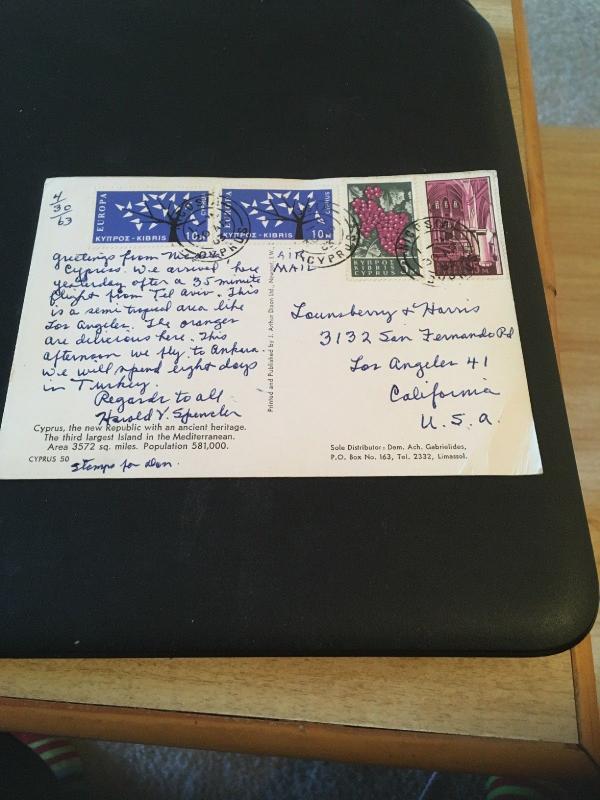 4
30
63
EUROPA
ΚΥΠΡΟΣ-KIBRIS
CYPRUS
10M
EUROPA
ΚΥΠΡΟΣ-KIBRIS
CYPRUS
10M
CYPRUS
CYPRUS
ΚΥΠΡΟΣ
KIBRIS
CYPRUS
AIR
MAIL
greetings from
Cyprus. We arrived here
yesterday after a 35 minute
flight from Tel Aviv. This
is a semi tropical area like
Los Angeles. The oranges
are delicious here. This
afternoon we fly to Ankara.
We will spend eight days
in Turkey.
Regards to all
Harold V. Spencler
Cyprus, the new Republic with an ancient heritage.
The third largest Island in the Mediterranean.
Area 3572 sq. miles. Population 581,000.
CYPRUS 50
Stamps for Don.
Printed and Published by J. Arthur Dixon Ltd., Newport, I.W.
Lounsberry & Harris
3132 San Fernando Rd
Los Angeles 41
California
U.S.A.
Sole Distributor: Dem. Ach. Gabrielides,
P.O. Box No. 163, Tel. 2332, Limassol.